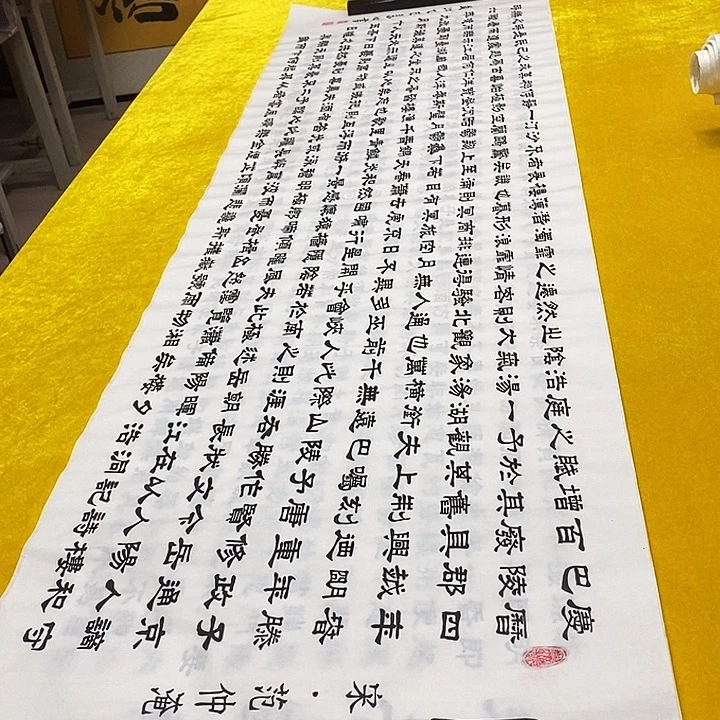 宋·范仲淹
慶曆四年春滕子京謫守
巴陵郡越明年政通人和
百廢具興乃重修岳陽樓
增其舊制刻唐賢今人詩
賦於其上屬予作文以記
之予觀夫巴陵勝狀在洞
庭一湖銜遠山吞長江浩
浩湯湯橫無際涯朝暉夕
陰氣象萬千此則岳陽樓
之大觀也前人之述備矣
然則北通巫峽南極瀟湘
遷客騷人多會於此覽物
之情得無異乎若夫霪雨
霏霏連月不開陰風怒號
濁浪排空日星隱耀山岳
潛形商旅不行檣傾楫摧
薄暮冥冥虎嘯猿啼登斯
樓也則有去國懷鄉憂讒
畏譏滿目蕭然感極而悲
者矣至若春和景明波瀾
不驚上下天光一碧萬頃
沙鷗翔集錦鱗游泳岸芷
汀蘭郁郁青青而或長煙
一空皓月千里浮光躍金
靜影沉璧漁歌互答此樂
何極登斯樓也則有心曠
神怡寵辱皆忘把酒臨風
其喜洋洋者矣嗟夫予嘗
求古仁人之心或異二者
之為何哉不以物喜不以